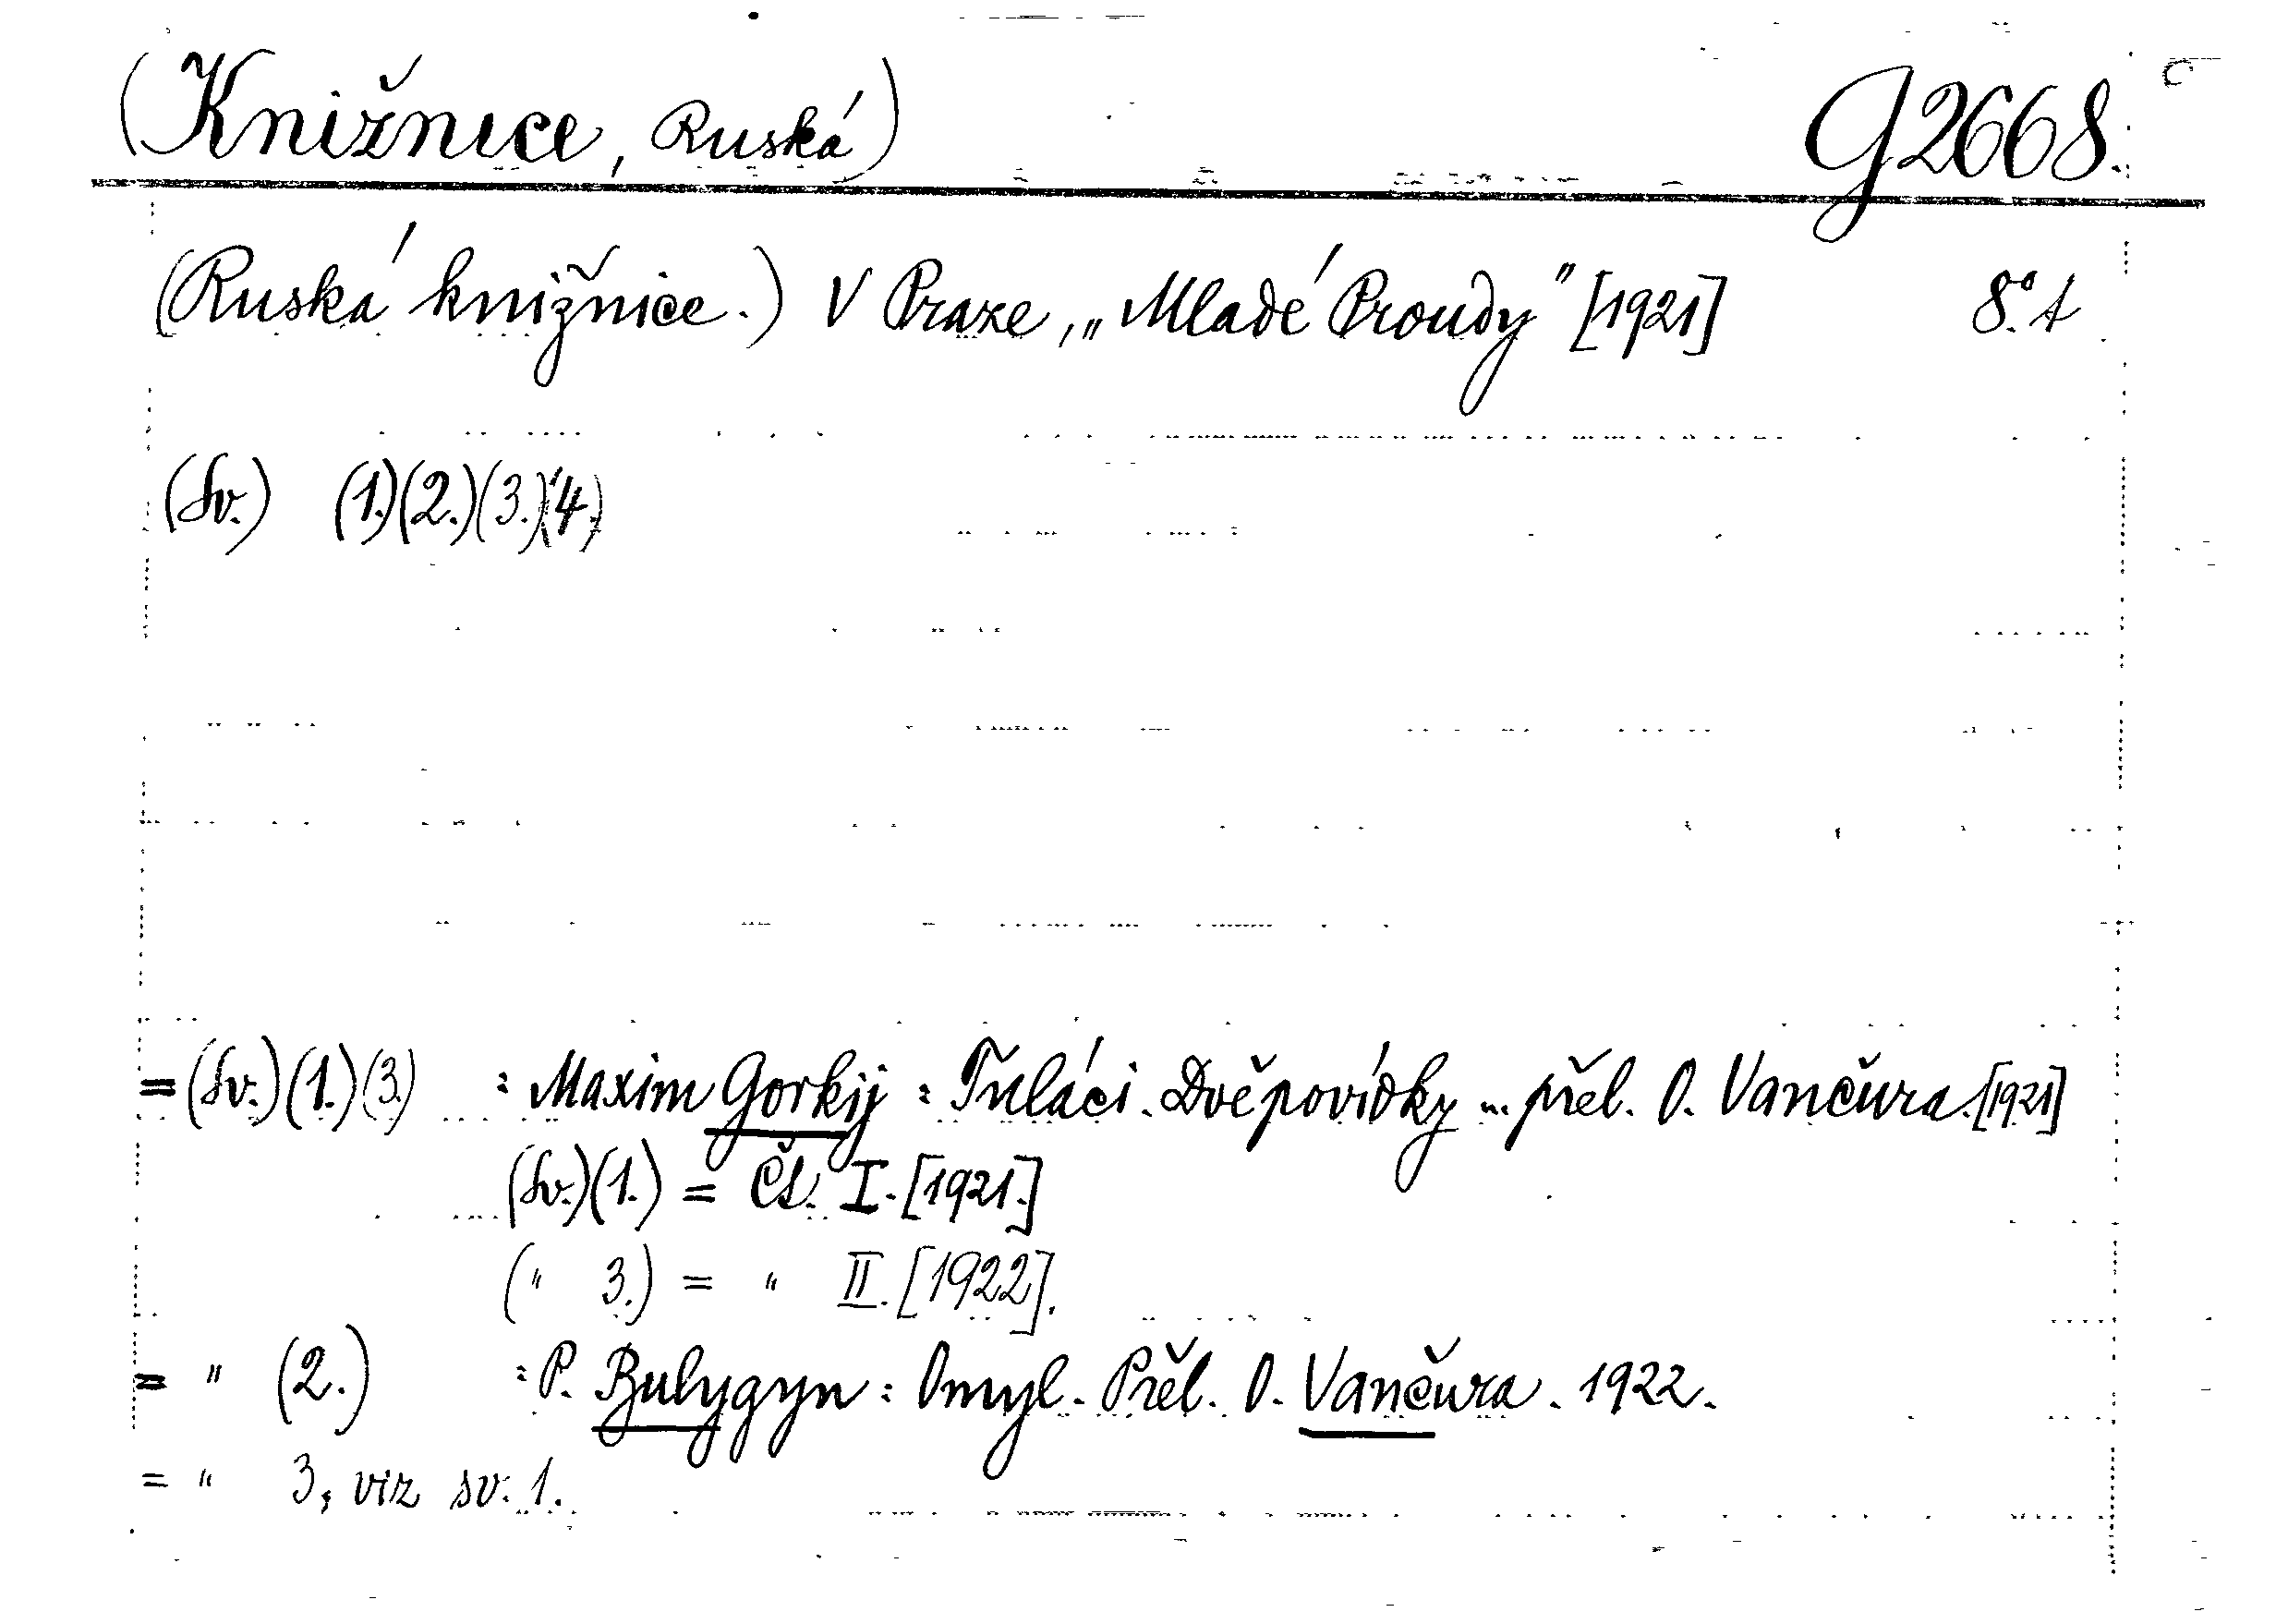 (Knižnice, Ruská) G2668.
(Ruská knižnice.) V Praze, „Mladé Proudy" [1921] 8° A
(Sv.) (1.)(2.)(3.)(4.)
= (Sv.)(1.)(3.) : Maxim Gorkij : Tuláci. Dvě povídky ... přel. O. Vančura. [1921]
(Sv.)(1.) = Čś. I. [1921.]
(" 3.) = " II. [1922].
= " (2.) : P. Bulygyn : Omyl. Přel. O. Vančura. 1922.
= " 3, viz sv. 1.